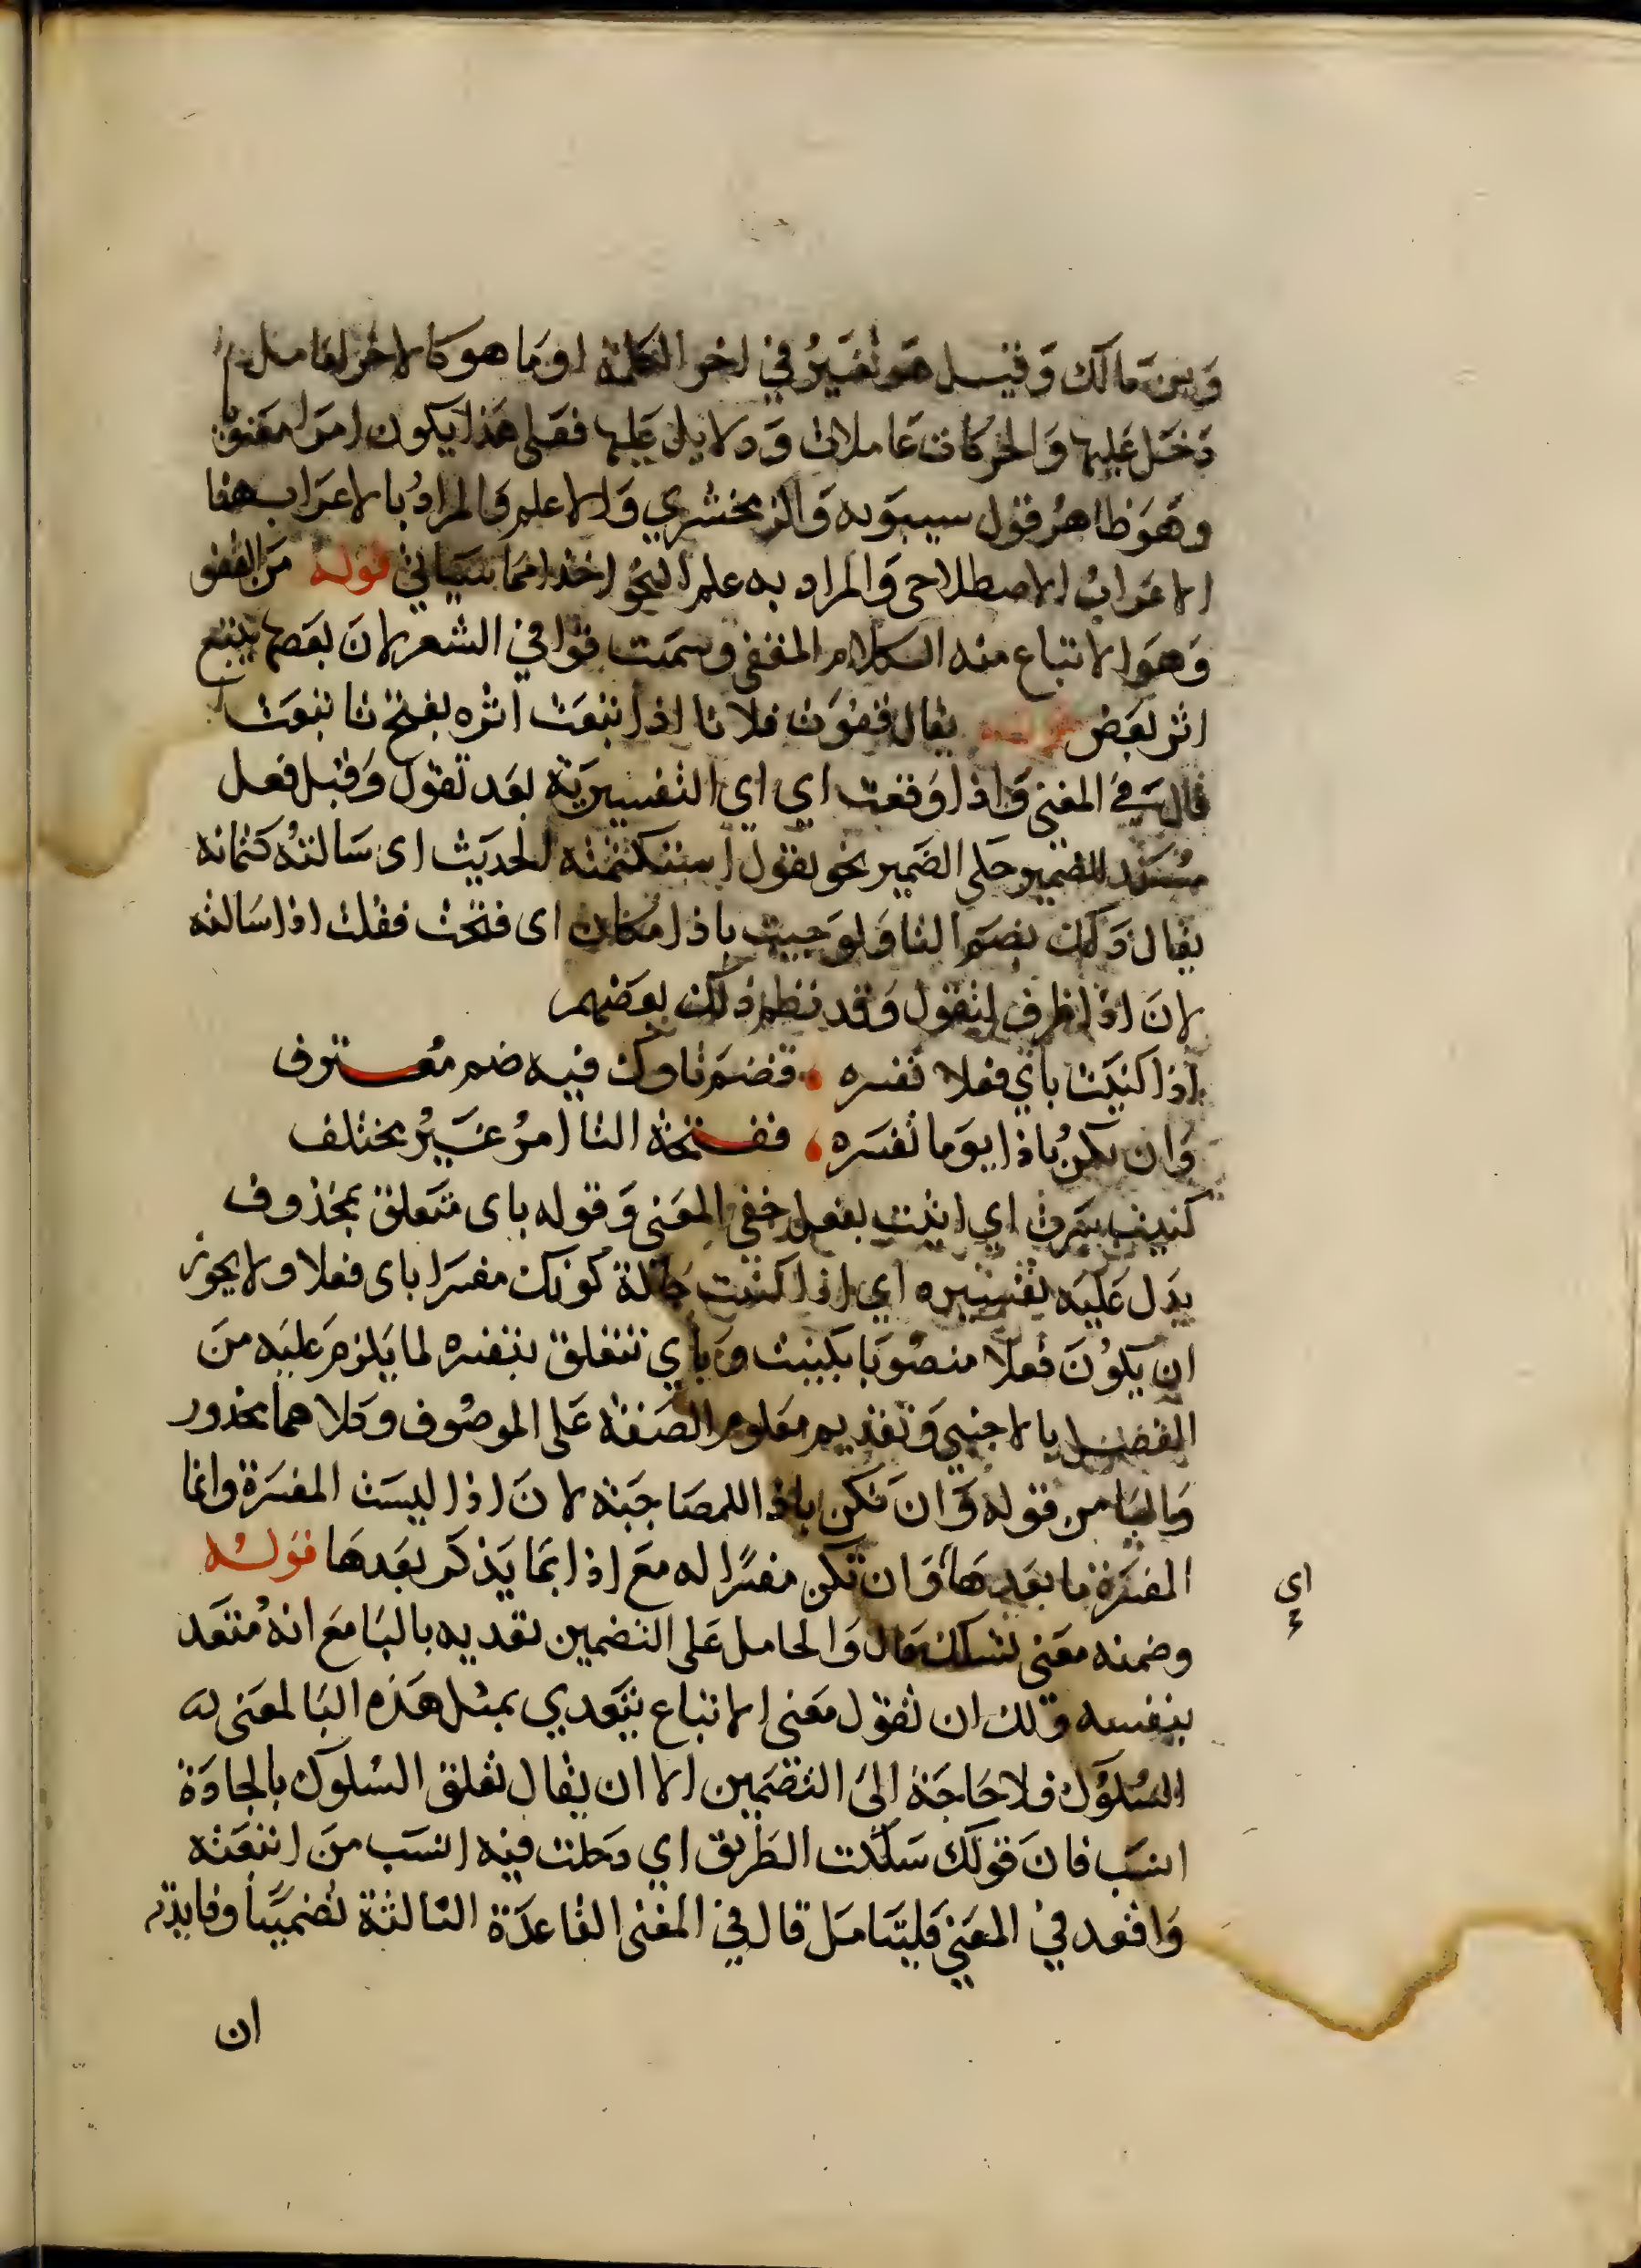 وبن مالك وقيل هو تغيير في اخر الكلمة او ما هو كالاخر لعامل
دخل عليها والحركات عاملات ودلايل عليها فعلى هذا يكون امرا معنويا
وهو ظاهر قول سيبويه والزمخشري والاعلم والمراد بالاعراب هنا
الاعراب الاصطلاحي والمراد به علم النحو اخذا مما سياتي قوله من القفو
وهو الاتباع منه الكلام المقفى وسميت قوافي الشعر لان بعضها يتبع
اثر بعض قوله يقال قفوت فلانا اذا اتبعت اثره بفتح تا تبعت
قال في المغني واذا وقعت اي اي التفسيرية بعد تقول وقبل فعل
مسند للضمير حكي الضمير نحو تقول استكتمته الحديث اى سالته كتمانه
يقال ذلك بضم التا ولو جيت باذا مكان اى فتحت فقلت اذا سالته
لان اذا ظرف لتقول وقد نظم ذلك بعضهم
اذا كنيت بأي فعلا تفسره فضم تاوك فيه ضم معترف
وان تكن باذا يوما تفسره ففتحة التا امر غير مختلف
كنيت اي اتيت بفعل خفي المعنى وقوله باى متعلق بمحذوف
يدل عليه تفسيره اي اذا كنيت حالة كونك مفسرا باى فعلا ولا يجوز
ان يكون فعلا منصوبا بكنيت وبأي تتعلق بتفسره لما يلزم عليه من
الفصل بالاجنبي وتقديم معلوم الصفة على الموصوف وكلاهما محذور
والبا من قوله وان تكن باذا للمصاحبة لان اذا ليست المفسرة وانما
المفسرة ما بعدها وان تكن مفسرا له مع اذا بما يذكر بعدها قوله
اي
وضمنه معنى نسلك قال والحامل على التضمين تعديه بالبا مع انه متعد
بنفسه ولك ان تقول معنى الاتباع يتعدي بمثل هذه البا لمعنى له
السلوك فلا حاجة الى التضمين الا ان يقال تعلق السلوك بالجادة
انسب فان قولك سلكت الطريق اي دخلت فيه انسب من اتبعته
واقعد في المعنى فليتامل قال في المغنى القاعدة الثالثة تضمينا وفايدته
ان